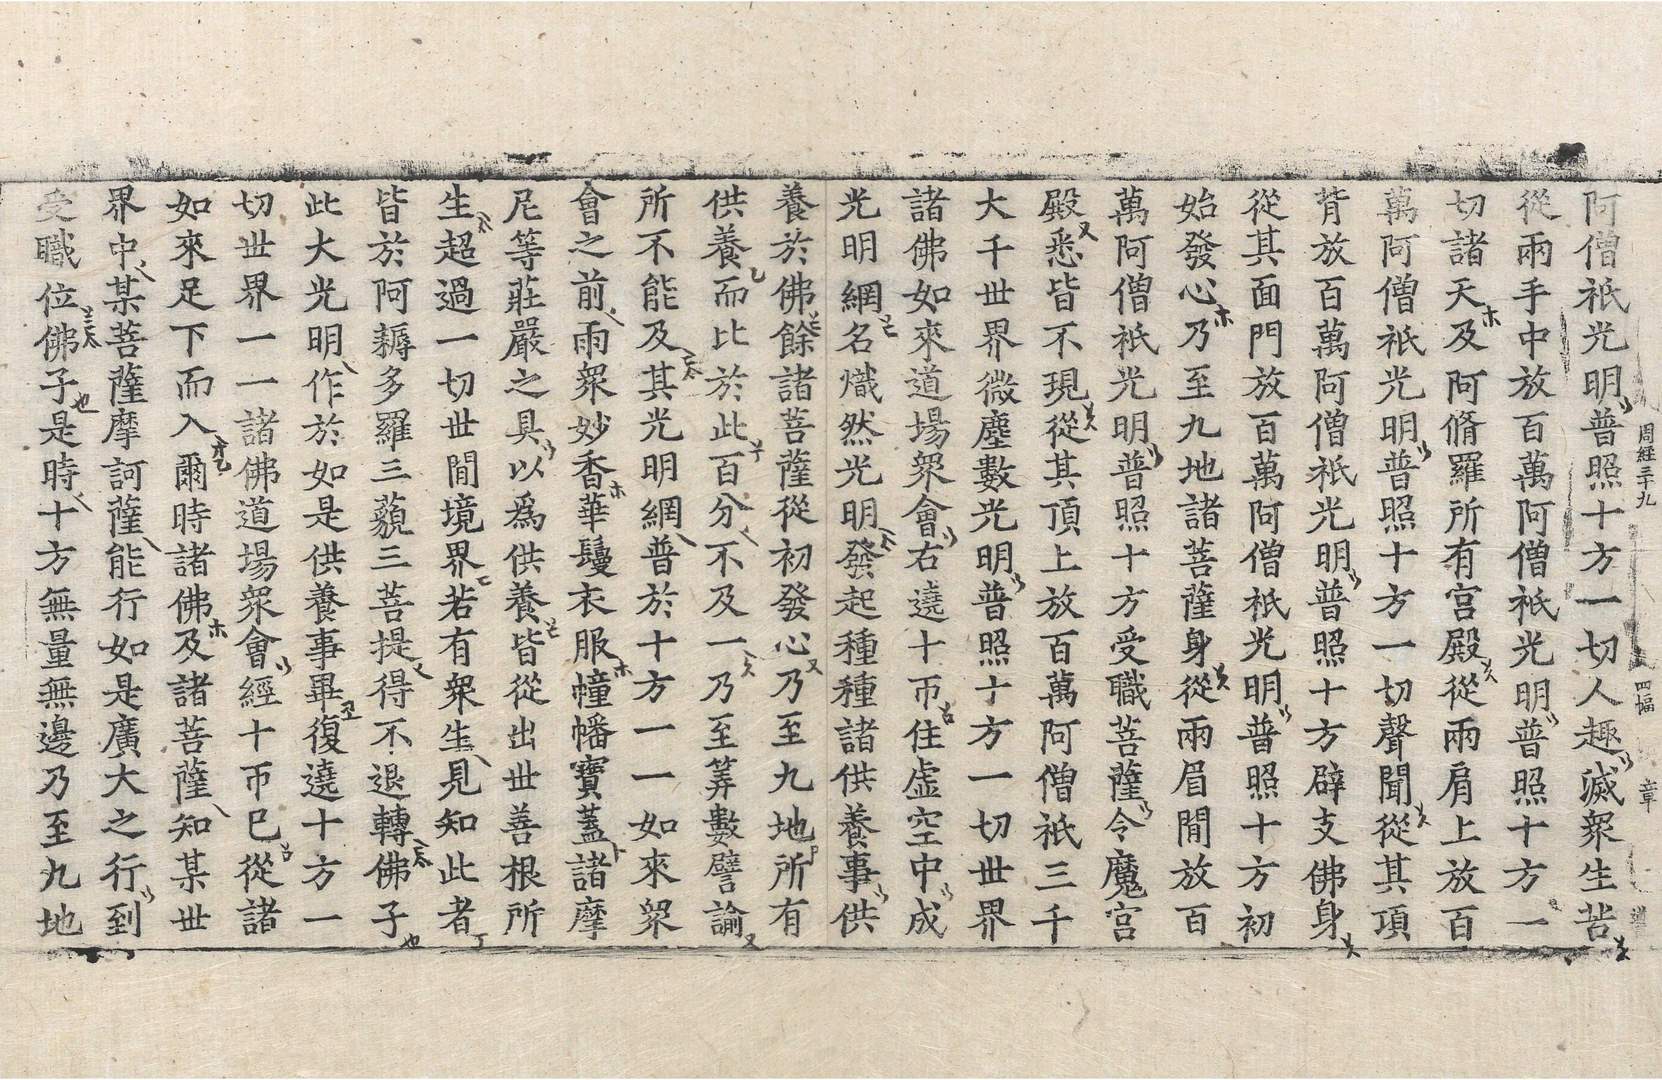 周經三十九 四幅 章
阿僧祇光明普照十方一切人趣滅衆生苦
從兩手中放百萬阿僧祇光明普照十方一
切諸天及阿脩羅所有宮殿從兩肩上放百
萬阿僧祇光明普照十方一切聲聞從其頂
背放百萬阿僧祇光明普照十方辟支佛身
從其面門放百萬阿僧祇光明普照十方初
始發心乃至九地諸菩薩身從兩眉間放百
萬阿僧祇光明普照十方受職菩薩令魔宮
殿悉皆不現從其頂上放百萬阿僧祇三千
大千世界微塵數光明普照十方一切世界
諸佛如來道場衆會右遶十帀住虛空中成
光明網名熾然光明發起種種諸供養事供
養於佛餘諸菩薩從初發心乃至九地所有
供養而比於此百分不及一乃至筭數譬諭
所不能及其光明網普於十方一一如來衆
會之前雨衆妙香華鬘衣服幢幡寶蓋諸摩
尼等莊嚴之具以爲供養皆從出世善根所
生超過一切世間境界若有衆生見知此者
皆於阿耨多羅三藐三菩提得不退轉佛子
此大光明作於如是供養事畢復遶十方一
切世界一一諸佛道場衆會經十帀已從諸
如來足下而入爾時諸佛及諸菩薩知某世
界中某菩薩摩訶薩能行如是廣大之行到
受職位佛子是時十方無量無邊乃至九地